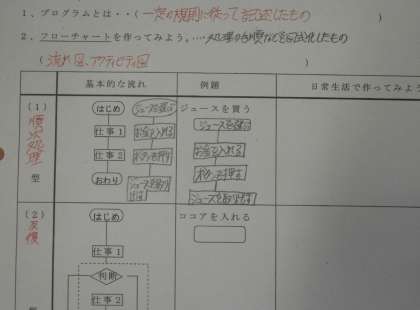 1、プログラムとは・・(一定の規則に従って記述したもの)
2、フローチャートを作ってみよう。‥‥処理の手順などを図式化したもの
(流れ図、アクティビティ図)
基本的な流れ 例題 日常生活で作ってみよう
(1) はじめ ジュースを選ぶ ジュースを買う
順次処理 仕事1 お金を入れる ジュースを選ぶ
仕事2 ボタンを押す お金を入れる
型 おわり ジュースを取り出す ボタンを押す
ジュースを取り出す
(2) はじめ ココアを入れる
反復 仕事1
判断
仕事2